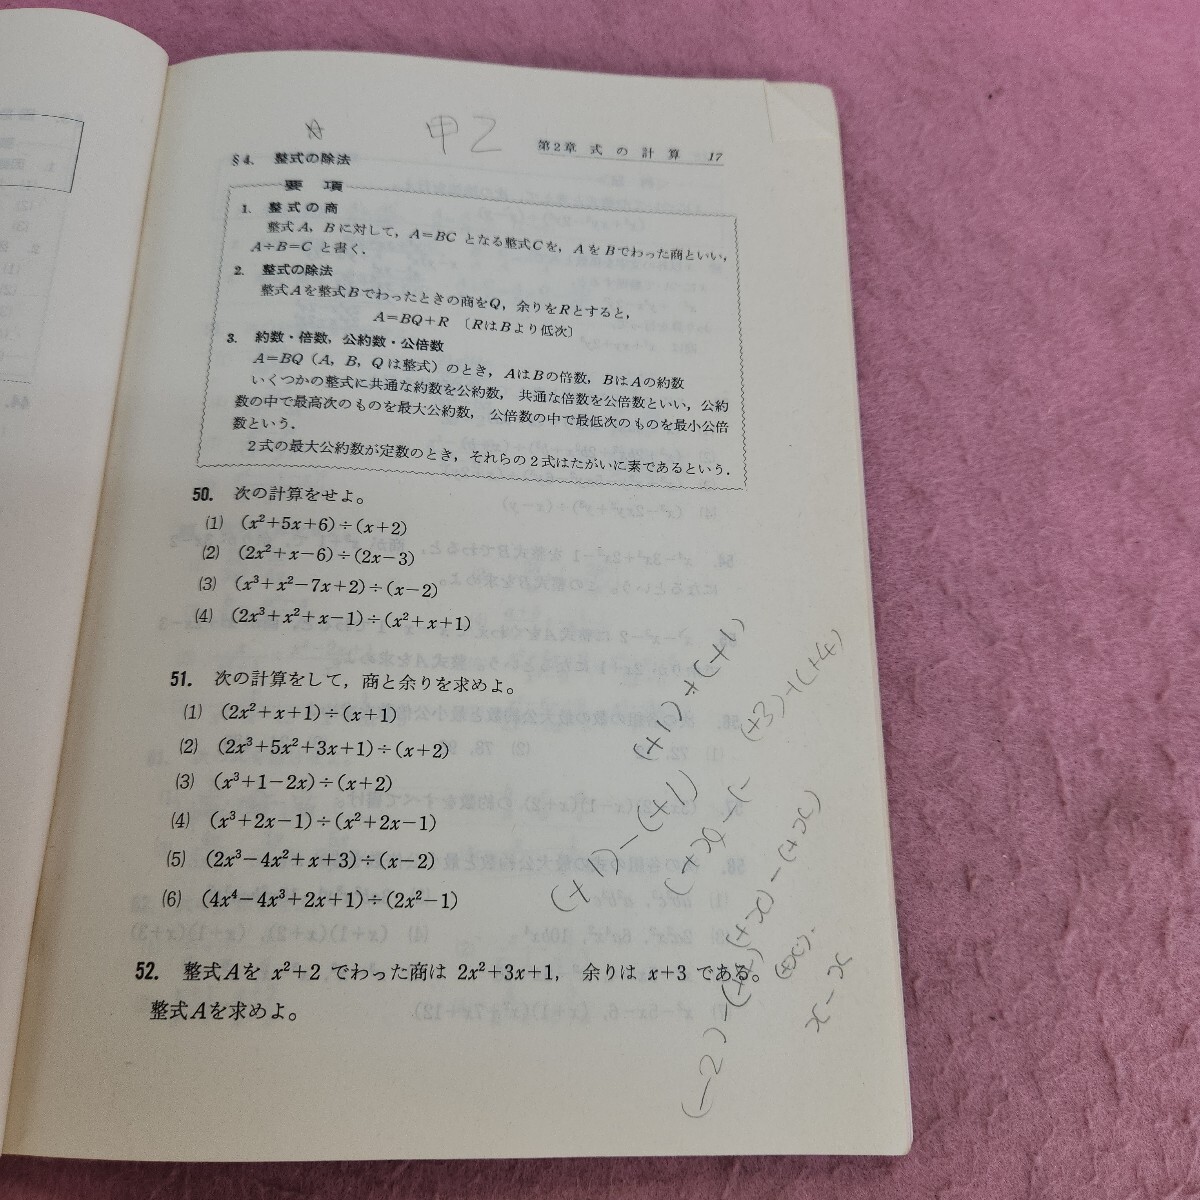 甲乙
第2章 式の計算 17
§4. 整式の除法
要項
1. 整式の商
整式A，Bに対して，A=BC となる整式Cを，AをBでわった商といい，
A÷B=C と書く．
2. 整式の除法
整式Aを整式Bでわったときの商をQ，余りをRとすると，
A=BQ+R 〔RはBより低次〕
3. 約数・倍数，公約数・公倍数
A=BQ（A，B，Qは整式）のとき，AはBの倍数，BはAの約数
いくつかの整式に共通な約数を公約数，共通な倍数を公倍数といい，公約
数の中で最高次のものを最大公約数，公倍数の中で最低次のものを最小公倍
数という．
2式の最大公約数が定数のとき，それらの2式はたがいに素であるという．
50. 次の計算をせよ。
(1) (x²+5x+6)÷(x+2)
(2) (2x²+x−6)÷(2x−3)
(3) (x³+x²−7x+2)÷(x−2)
(4) (2x³+x²+x−1)÷(x²+x+1)
51. 次の計算をして，商と余りを求めよ。
(1) (2x²+x+1)÷(x+1)
(2) (2x³+5x²+3x+1)÷(x+2)
(3) (x³+1−2x)÷(x+2)
(4) (x³+2x−1)÷(x²+2x−1)
(5) (2x³−4x²+x+3)÷(x−2)
(6) (4x⁴−4x³+2x+1)÷(2x²−1)
52. 整式Aを x²+2 でわった商は 2x²+3x+1，余りは x+3 である。
整式Aを求めよ。
(+1)−(+1)
(+1)+(+1)
(+3)+(+4)
(+x)−(+x)
x−x